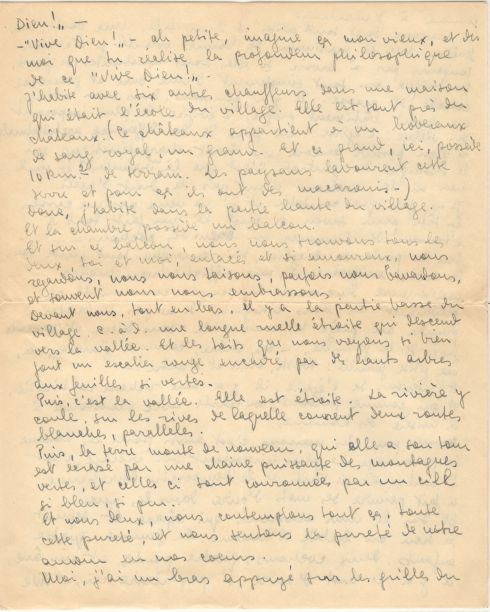 Dieu!„ —
— "Vive Dieu!„ — ah petite, imagine ça mon vieux, et dis
moi que tu réalise la profondeur philosophique
de ce "Vive Dieu!„ .
J'habite avec six autres chauffeurs dans une maison
qui était l'école du village. Elle est tout près du
châteaux (Ce châteaux appartient a un hobereaux
de sang royal, un grand. et ce grand, ici, possède
10 km² de terrain. Les paysans labourent cette
terre et pour ça ils ont des macaronis.-)
Donc, j'habite dans la partie haute du village.
Et la chambre possède un balcon.
Et sur ce balcon, nous nous trouvons tous les
deux, toi et moi, enlacés et si amoureux, nous
regardons, nous nous taisons, parfois nous bavardons,
et souvent nous nous embrassons.
Devant nous, tout en bas, il y a la partie basse du
village c.à.d. une longue ruelle étroite qui descend
vers la vallée. Et les toits que nous voyons si bien
font un escalier rouge encadré par des hauts arbres
aux feuilles si vertes.
Puis, c'est la vallée. Elle est étroite. La rivière y
coule, sur les rives de laquelle courent deux routes
blanches, parallèles.
Puis, la terre monte de nouveau, qui elle a son tour
est écrasé par une chaîne puissante des montagnes
vertes, et celles ci sont couronnées par un ciel
si bleu, si pur.
Et nous deux, nous contemplons tout ça, toute
cette pureté, et nous sentons la pureté de notre
amour en nos coeurs.
Moi, j'ai un bras appuyé sur les grilles du